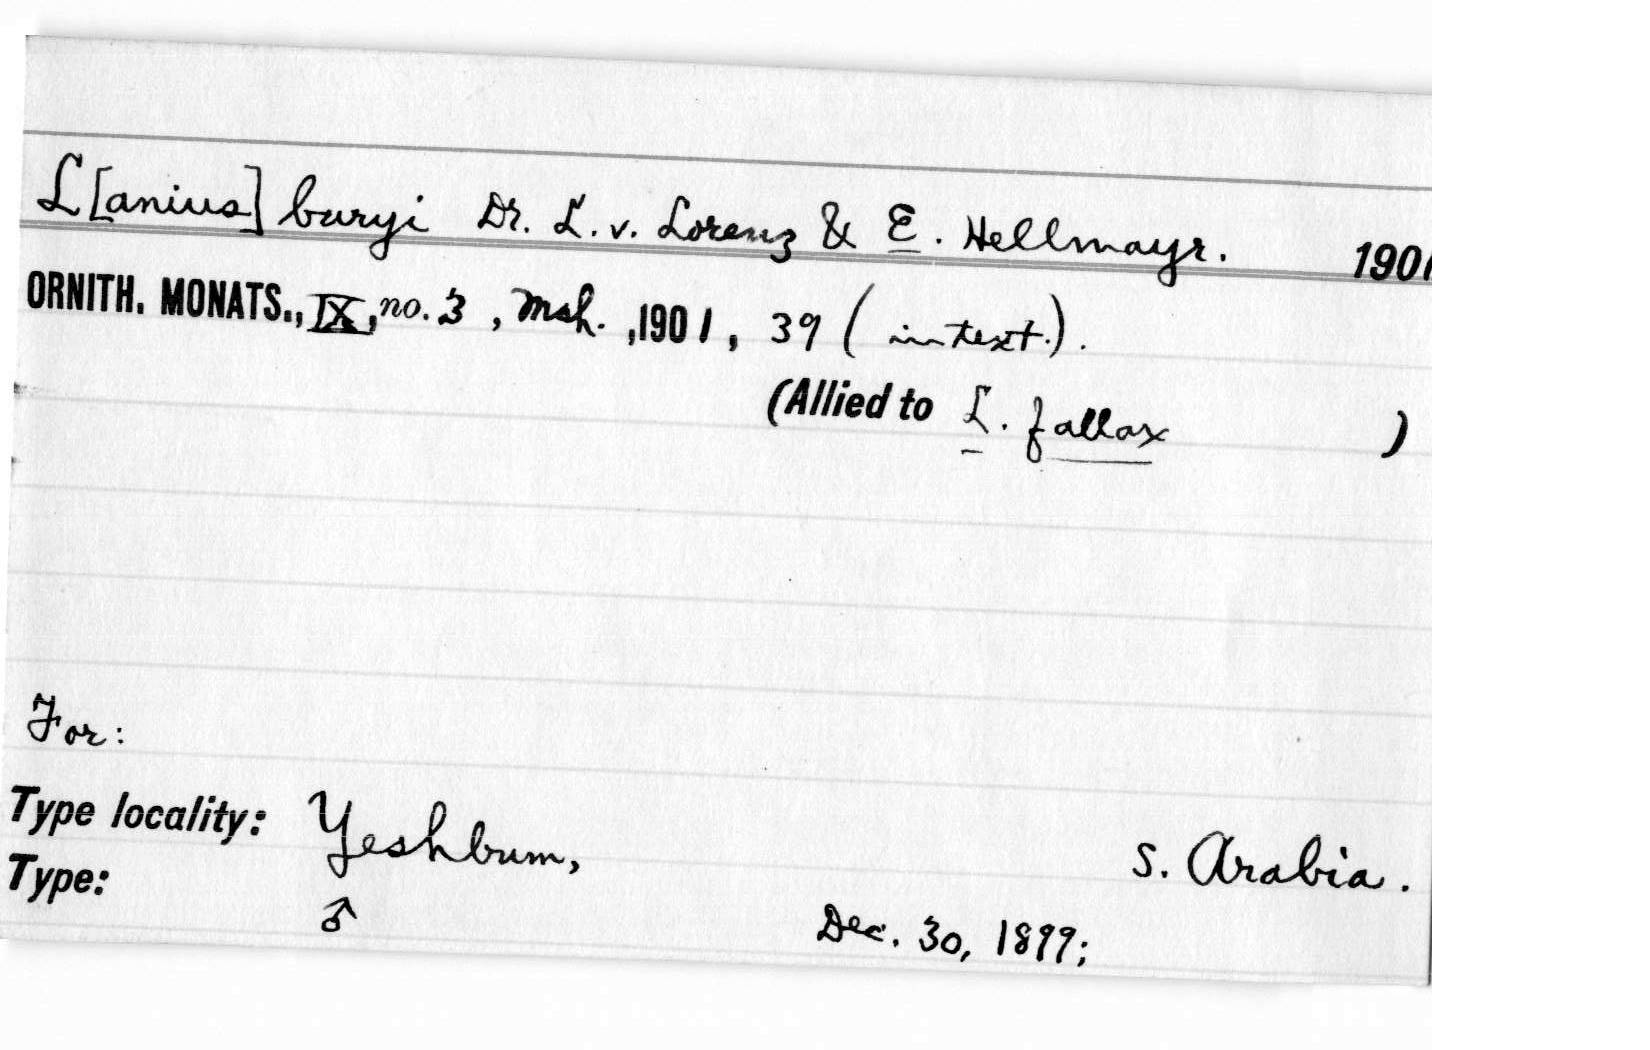 L[anius] buryi Dr. L. v. Lorenz & E. Hellmayr. 1901
ORNITH. MONATS., IX, no. 3, Mch. ,1901, 39 (in text.).
(Allied to L. fallax )
For:
Type locality: Yeshbum, S. Arabia.
Type: ♂ Dec. 30, 1899;